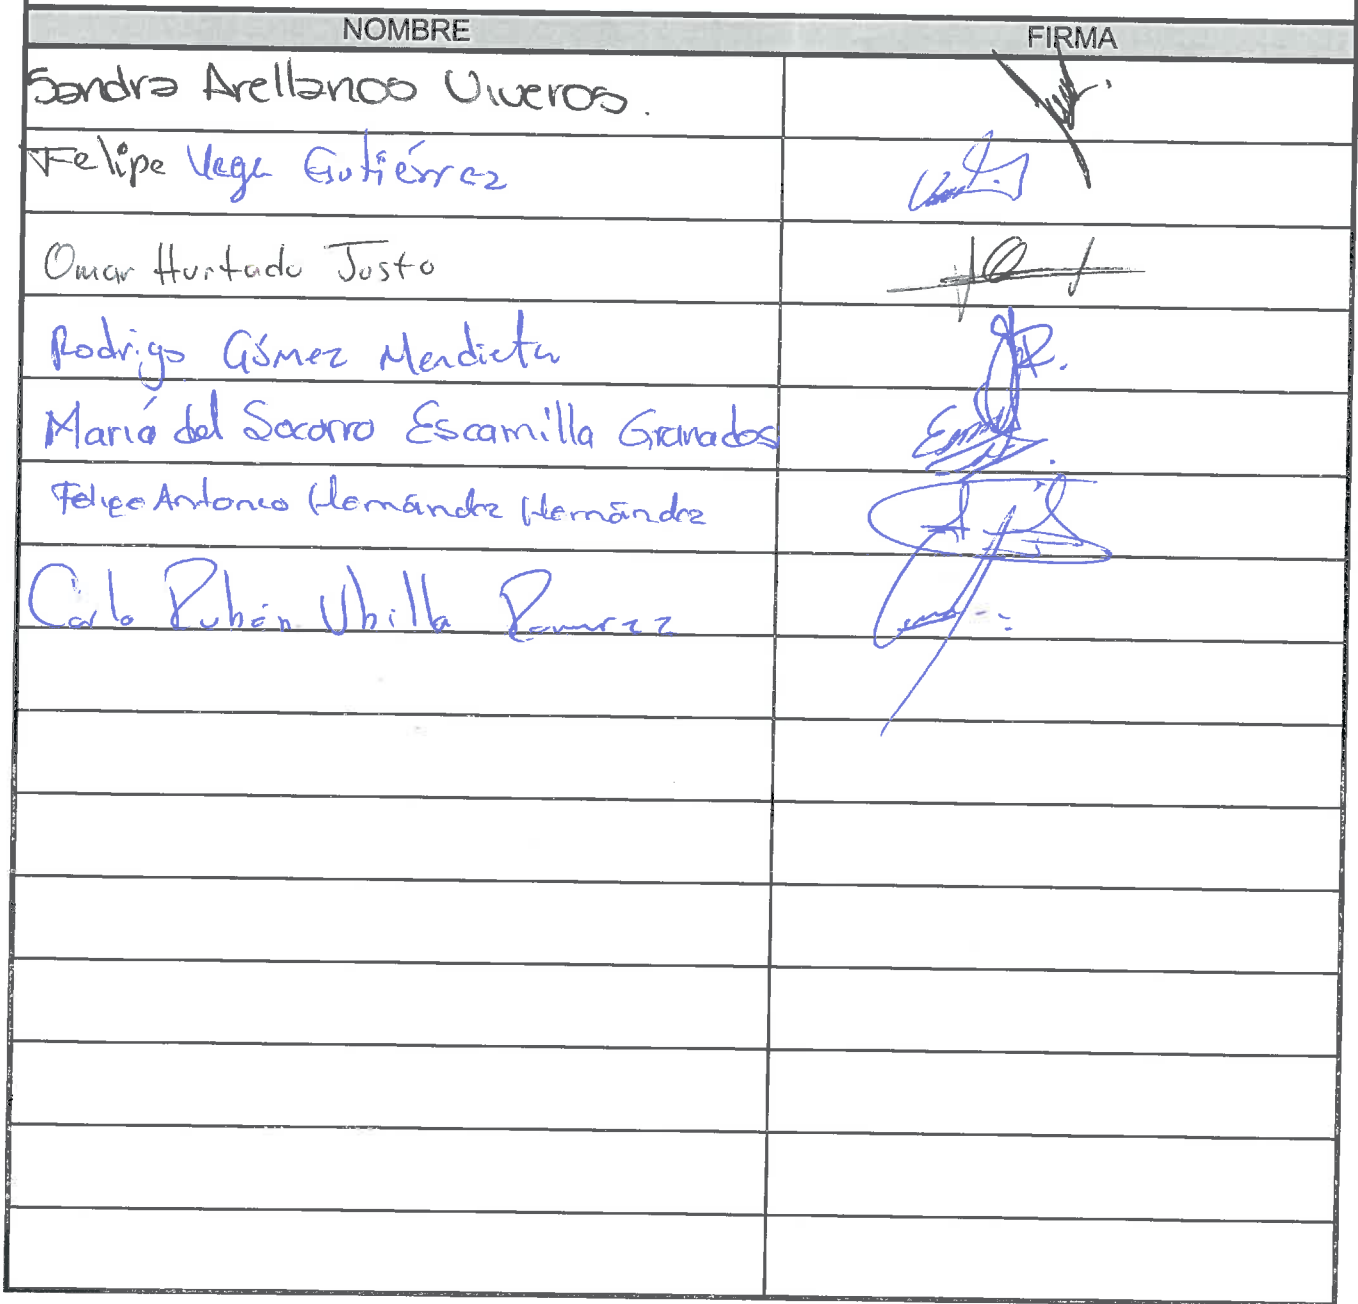 NOMBRE FIRMA
Sandra Arellanos Viveros.
Felipe Vega Gutiérrez
Omar Hurtado Justo
Rodrigo Gómez Mendieta
María del Socorro Escamilla Granados
Felipe Antonio Hernández Hernández
Carlo Rubén Ubilla Ramírez